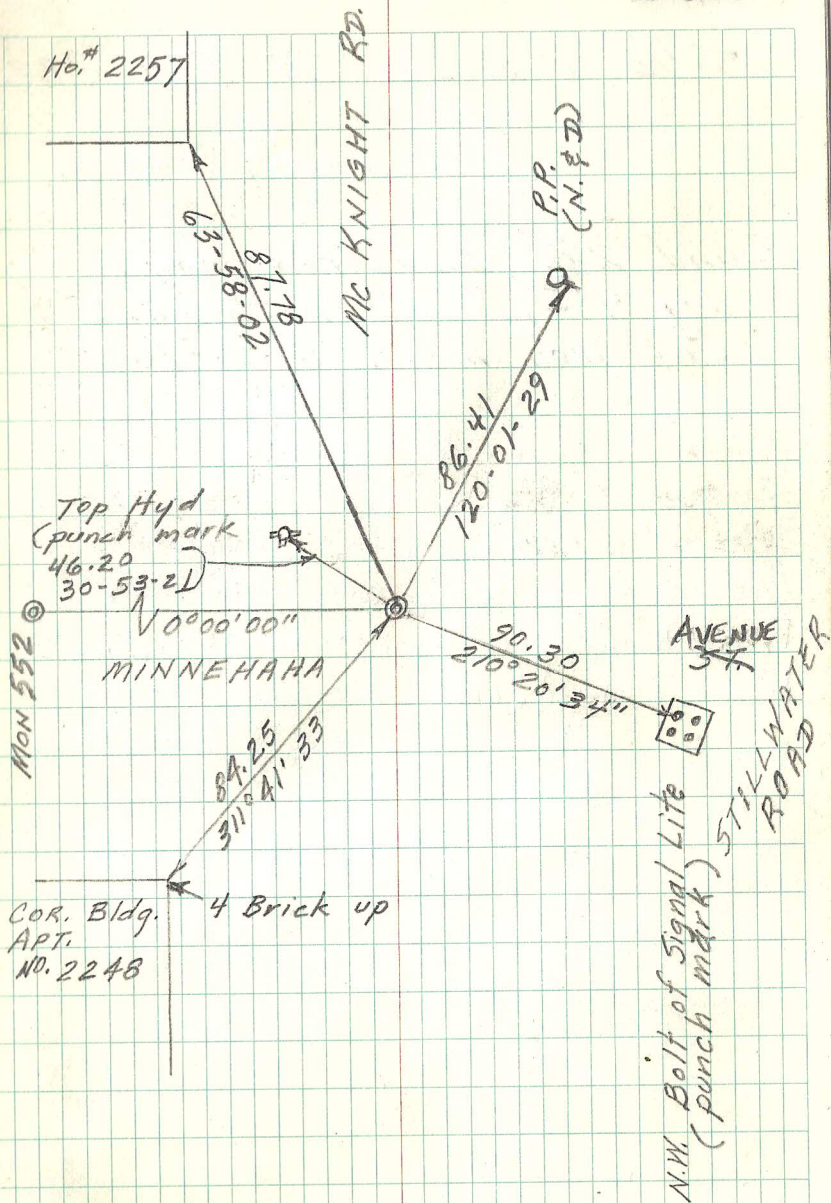 Ho.# 2257
MC KNIGHT RD.
P.P.
(N. & D)
87.18
63-58-02
86.41
120-01-29
Top Hyd
(punch mark
46.20
30-53-21)
0°00'00"
MON 552
MINNEHAHA
90.30
210°20'34"
AVENUE
ST
STILLWATER
ROAD
84.25
311°41'33
COR. Bldg.
APT.
NO. 2248
4 Brick up
N.W. Bolt of Signal Lite
(punch mark)